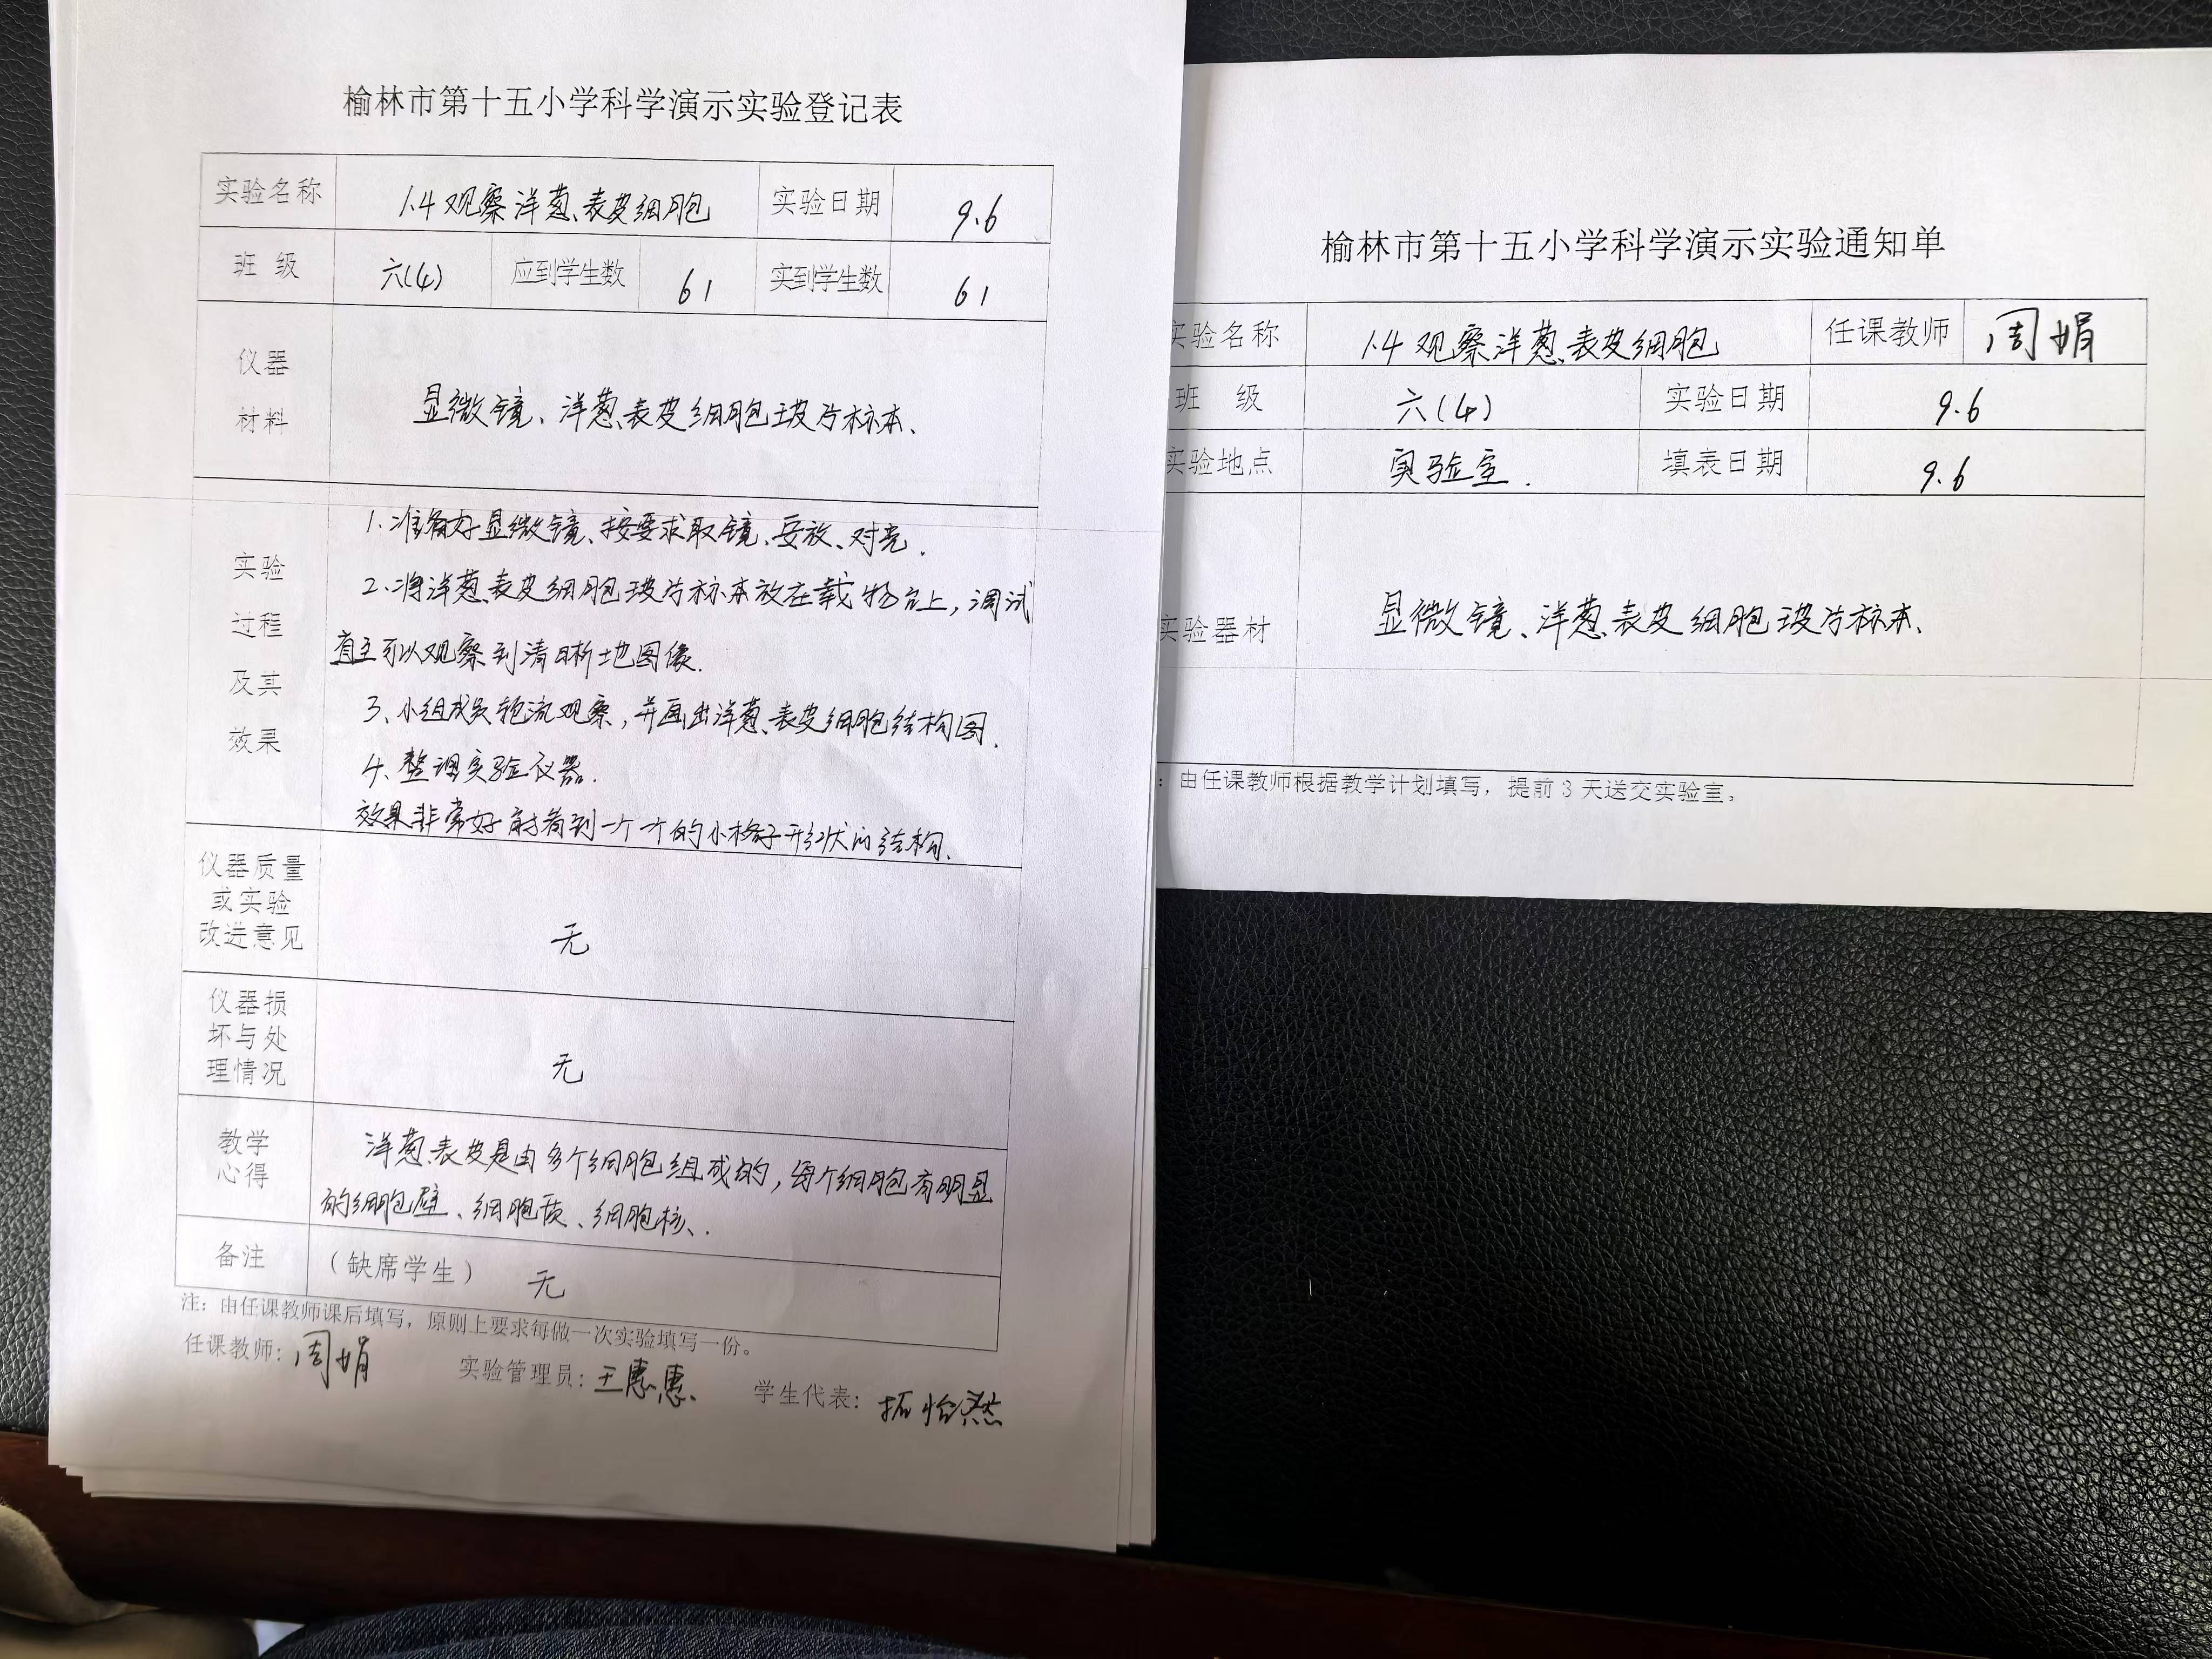 榆林市第十五小学科学演示实验登记表
实验名称 1.4 观察洋葱表皮细胞 实验日期 9.6
班 级 六(4) 应到学生数 61 实到学生数 61
仪器
材料
显微镜、洋葱表皮细胞玻片标本、
实验
过程
及其
效果
1.准备好显微镜、按要求取镜、安放、对光.
2.将洋葱表皮细胞玻片标本放在载物台上,调试
直至可以观察到清晰地图像.
3、小组成员轮流观察,并画出洋葱表皮细胞结构图、
4、整理实验仪器.
效果非常好 能看到一个个的小格子形状的结构、
仪器质量
或实验
改进意见
无
仪器损
坏与处
理情况
无
教学
心得
洋葱表皮是由多个细胞组成的,每个细胞有明显
的细胞壁、细胞质、细胞核、
备注 (缺席学生) 无
注：由任课教师课后填写，原则上要求每做一次实验填写一份。
任课教师: 周娟 实验管理员: 王惠惠 学生代表: 拓怡然
榆林市第十五小学科学演示实验通知单
实验名称 1.4 观察洋葱表皮细胞 任课教师 周娟
班 级 六(4) 实验日期 9.6
实验地点 实验室. 填表日期 9.6
实验器材 显微镜、洋葱表皮细胞玻片标本、
：由任课教师根据教学计划填写，提前 3 天送交实验室。